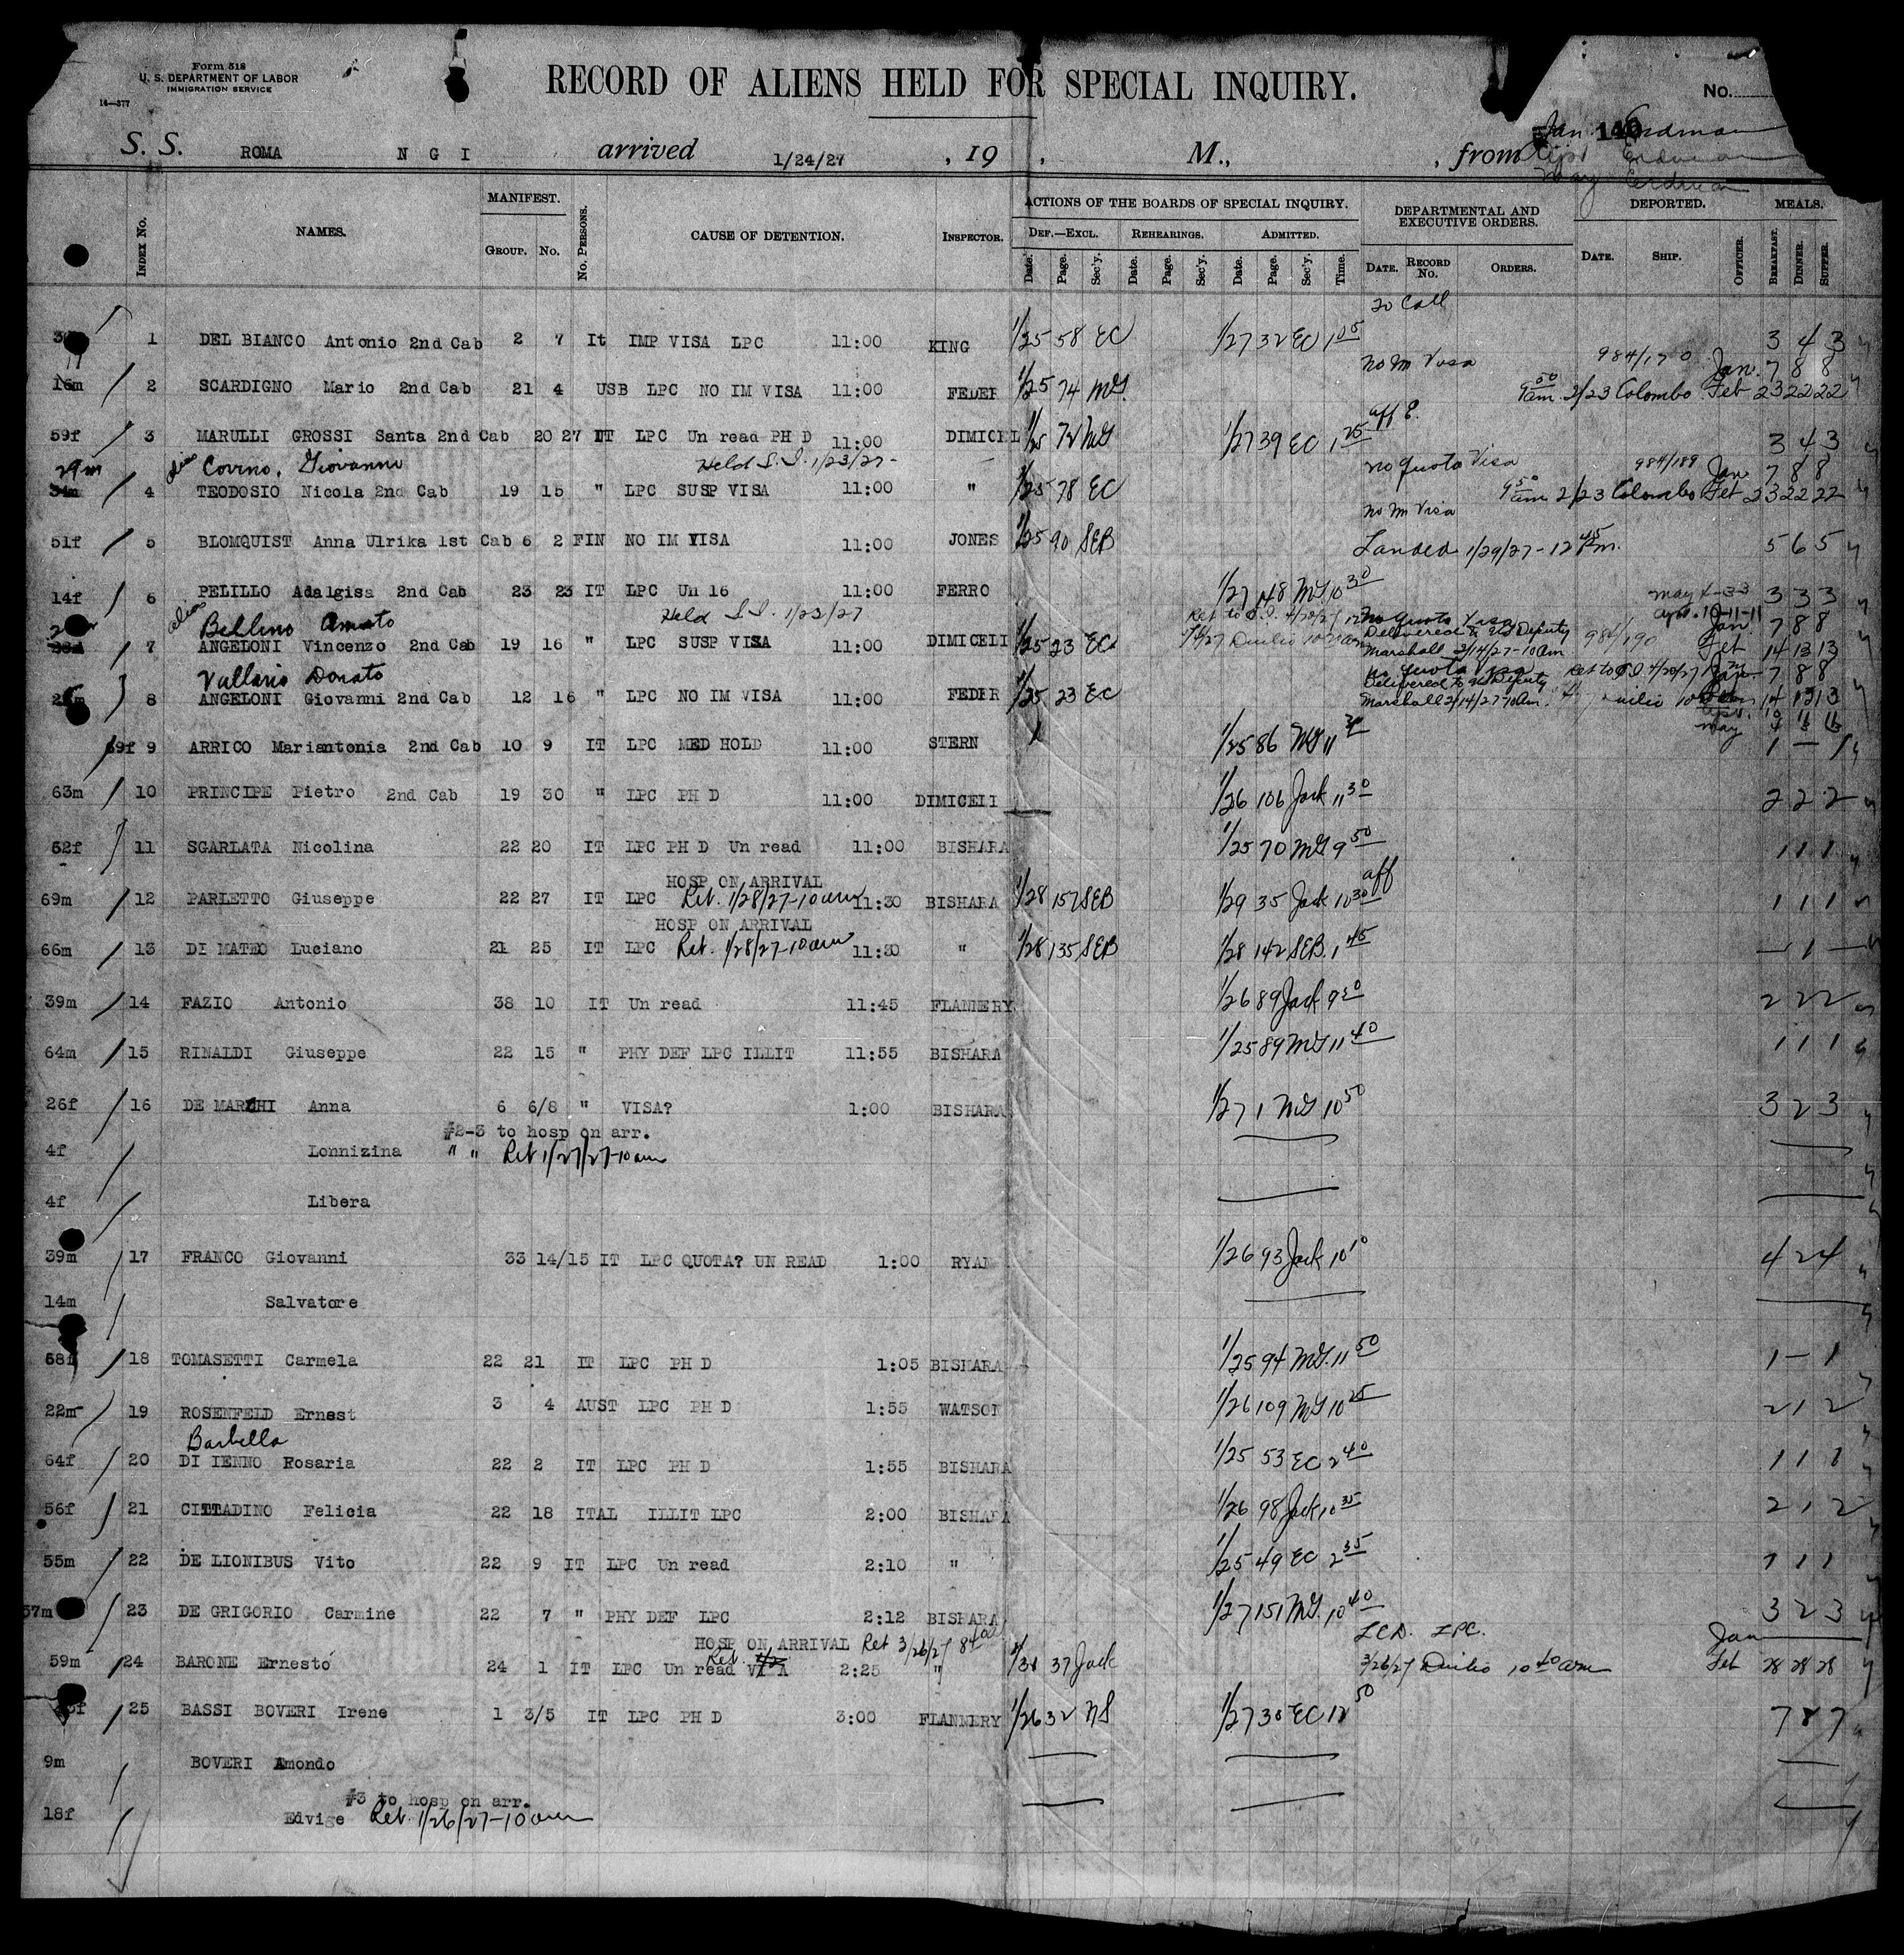 Form 518
U. S. DEPARTMENT OF LABOR
IMMIGRATION SERVICE
14—377
RECORD OF ALIENS HELD FOR SPECIAL INQUIRY.
No.
140
S. S. ROMA N G I arrived 1/24/27 , 19 , M., , from
Jan. Erdman
Sept Erdman
May Erdman
INDEX No. NAMES. MANIFEST. GROUP. No. No. PERSONS. CAUSE OF DETENTION. INSPECTOR. ACTIONS OF THE BOARDS OF SPECIAL INQUIRY. DEF.—EXCL. Date. Page. Sec'y. REHEARINGS. Date. Page. Sec'y. ADMITTED. Date. Page. Sec'y. Time. DEPARTMENTAL AND EXECUTIVE ORDERS. DATE. RECORD No. ORDERS. DEPORTED. DATE. SHIP. OFFICER. MEALS. BREAKFAST. DINNER. SUPPER.
To Call
1 DEL BIANCO Antonio 2nd Cab 2 7 It IMP VISA LPC 11:00 KING 1/25 58 EC 1/27 32 EC 1 05 3 4 3
no Im Visa 984/170 Jan. 7 8 8
16m 2 SCARDIGNO Mario 2nd Cab 21 4 USB LPC NO IM VISA 11:00 FEDER 1/25 74 MG. 9 50 am 2/23 Colombo Feb 23 22 22
aff
59f 3 MARULLI GROSSI Santa 2nd Cab 20 27 IT LPC Un read PH D 11:00 DIMICEL 1/25 72 MG 1/27 39 EC 1 25 3 4 3
29m alias Covino, Giovanni Held S.I. 1/23/27- no quota Visa 984/189 Jan 7 8 8
34m 4 TEODOSIO Nicola 2nd Cab 19 15 " LPC SUSP VISA 11:00 " 1/25 78 EC 9 50 am 2/23 Colombo Feb 23 22 22
no Im Visa
51f 5 BLOMQUIST Anna Ulrika 1st Cab 6 2 FIN NO IM VISA 11:00 JONES 1/25 90 SEB Landed 1/29/27-12 45 Pm. 5 6 5
14f 6 PELILLO Adalgisa 2nd Cab 23 23 IT LPC Un 16 11:00 FERRO 1/27 48 MG 10 30 3 3 3
may 4-3-3
apr. 10-11-11
alias Bellino Amato Held S.I. 1/23/27 Ret to S.I. 4/20/27 no Quota Visa Jan 7 8 8
7 ANGELONI Vincenzo 2nd Cab 19 16 " LPC SUSP VISA 11:00 DIMICELI 1/25 23 EC Duilio Delivered to US Deputy Marshall 2/14/27-10am 984/190 Feb 14 13 13
Vallario Donato no quota visa Ret to S.I. 4/20/27 Jan 7 8 8
8 ANGELONI Giovanni 2nd Cab 12 16 " LPC NO IM VISA 11:00 FEDER 1/25 23 EC Delivered to US Deputy Marshall 2/14/27-10am. 14 13 13
may
69f 9 ARRICO Mariantonia 2nd Cab 10 9 IT LPC MED HOLD 11:00 STERN 1/25 86 MG 11 1 — 1
63m 10 PRINCIPE Pietro 2nd Cab 19 30 " LPC PH D 11:00 DIMICELI 1/26 106 Jack 11 30 2 2 2
62f 11 SGARLATA Nicolina 22 20 IT LPC PH D Un read 11:00 BISHARA 1/25 70 MG 9 50 1 1 1
HOSP ON ARRIVAL aff
69m 12 PARLETTO Giuseppe 22 27 IT LPC Ret. 1/28/27-10am 11:30 BISHARA 1/28 157 SEB 1/29 35 Jack 10 30 1 1 1
HOSP ON ARRIVAL
66m 13 DI MATEO Luciano 21 25 IT LPC Ret. 1/28/27-10am 11:30 " 1/28 135 SEB 1/28 142 SEB. 1 45 — 1 —
39m 14 FAZIO Antonio 38 10 IT Un read 11:45 FLANNERY 1/26 89 Jack 9 30 2 2 2
64m 15 RINALDI Giuseppe 22 15 " PHY DEF LPC ILLIT 11:55 BISHARA 1/25 89 MG 11 40 1 1 1
26f 16 DE MARCHI Anna 6 6/8 " VISA? 1:00 BISHARA 1/27 1 MG 10 50 3 2 3
#2-3 to hosp on arr.
4f Lonnizina " " Ret 1/27/27-10am
4f Libera
39m 17 FRANCO Giovanni 33 14/15 IT LPC QUOTA? UN READ 1:00 RYAN 1/26 93 Jack 10 10 4 2 4
14m Salvatore
68f 18 TOMASETTI Carmela 22 21 IT LPC PH D 1:05 BISHARA 1/25 94 MG. 11 50 1 — 1
22m 19 ROSENFELD Ernest 3 4 AUST LPC PH D 1:55 WATSON 1/26 109 MG 10 25 2 1 2
Barbella
64f 20 DI IENNO Rosaria 22 2 IT LPC PH D 1:55 BISHARA 1/25 53 EC 2 40 1 1 1
56f 21 CITTADINO Felicia 22 18 ITAL ILLIT LPC 2:00 BISHARA 1/26 98 Jack 10 35 2 1 2
55m 22 DE LIONIBUS Vito 22 9 IT LPC Un read 2:10 " 1/25 49 EC 2 35 1 1 1
57m 23 DE GRIGORIO Carmine 22 7 " PHY DEF LPC 2:12 BISHARA 1/27 151 MG. 10 40 3 2 3
HOSP ON ARRIVAL Ret 3/26/27 LCD. LPC. Jan
59m 24 BARONE Ernesto 24 1 IT LPC Un read 2:25 " 1/31 37 Jack 3/26/27 Duilio 10 40 am Feb 28 28 28
25 BASSI BOVERI Irene 1 3/5 IT LPC PH D 3:00 FLANNERY 1/26 32 NS 1/27 30 EC 12 50 7 8 7
9m BOVERI Amondo
#3 to hosp on arr.
18f Edvige Ret. 1/26/27-10am